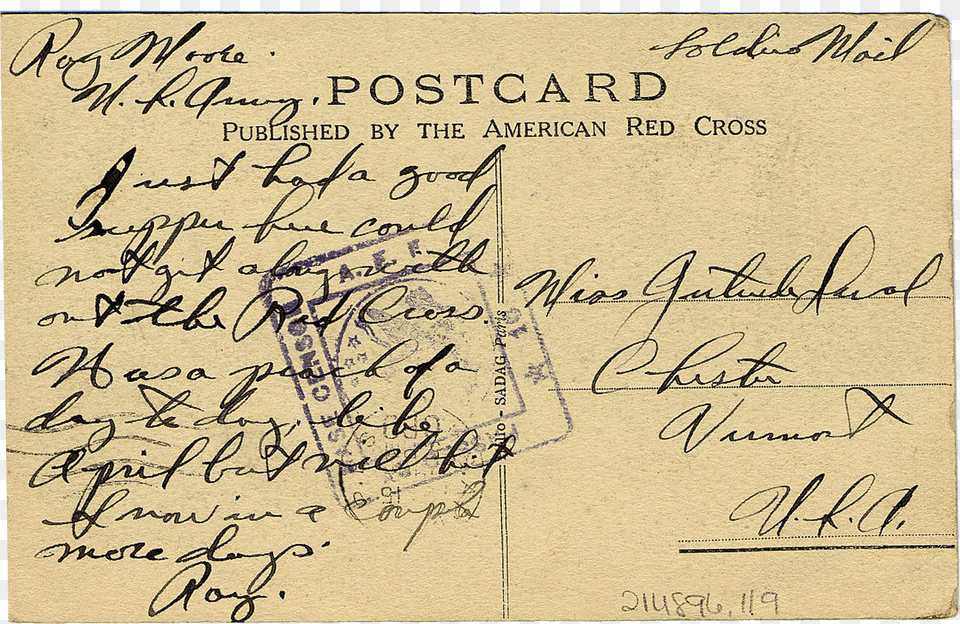 Ray Moore.
U.S. Army.
Soldiers Mail
POSTCARD
PUBLISHED BY THE AMERICAN RED CROSS
Just had a good
supper here could
not get along with
out the Red Cross.
Was a peach of a
day to day,
April but will bet
snow in a couple
more days.
Ray.
A. E. F.
BASE CENSOR
SADAG Paris
Miss Gertrude
Chester
Vermont
U.S.A.
214896.119